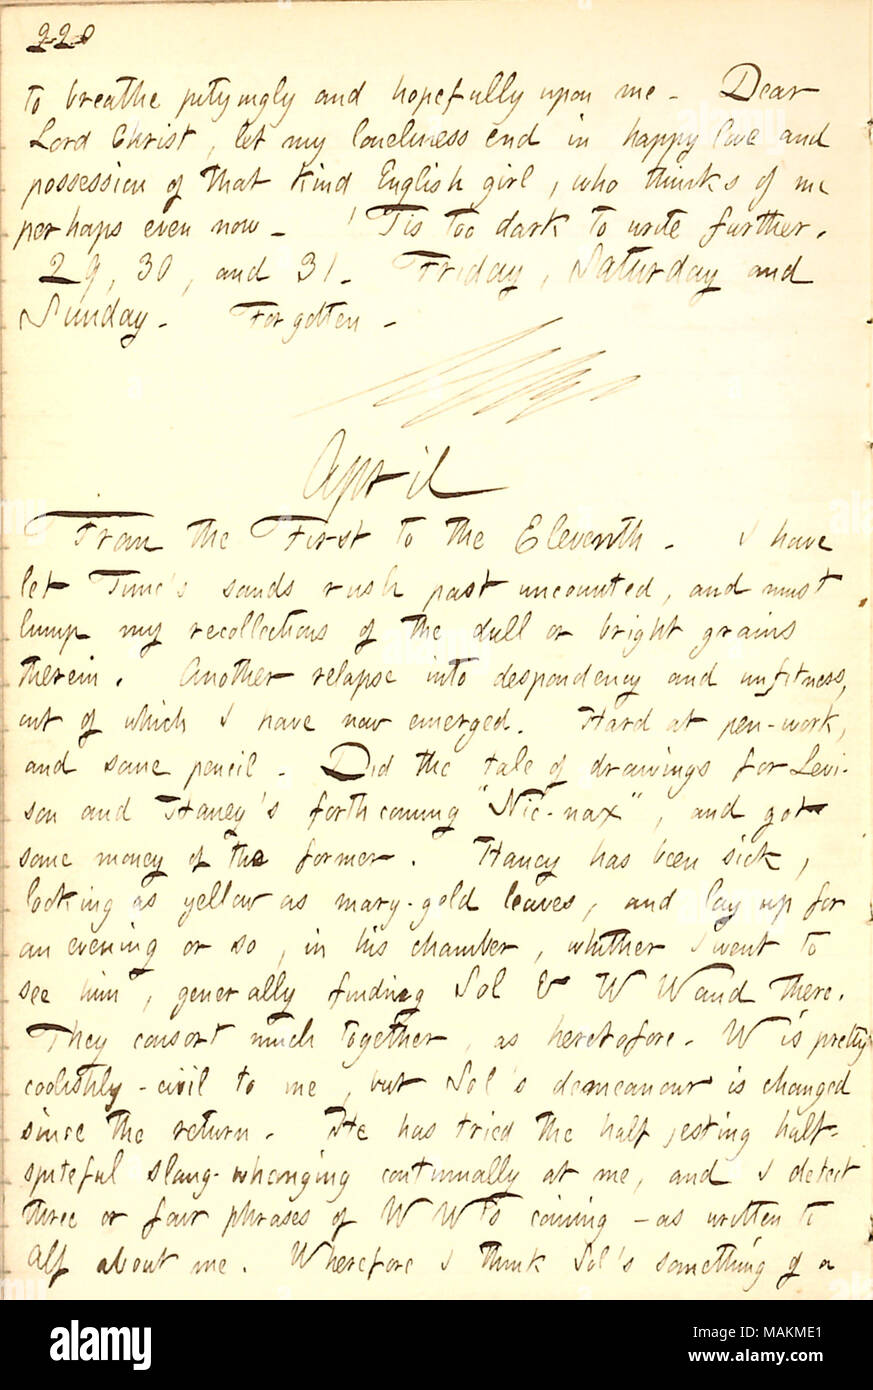 220
to breathe pityingly and hopefully upon me. Dear
Lord Christ, let my loneliness end in happy love and
possession of that kind English girl, who thinks of me
perhaps even now. 'Tis too dark to write further.
29, 30, and 31. Friday, Saturday and
Sunday. Forgotten.
April
From the First to the Eleventh. I have
let Time's sands rush past uncounted, and must
lump my recollections of the dull or bright grains
therein. Another relapse into despondency and unfitness,
out of which I have now emerged. Hard at pen-work,
and some pencil. Did the tale of drawings for Levi-
son and Haney's forthcoming "Nic-nax", and got
some money of the former. Haney has been sick,
looking as yellow as mary-gold leaves, and lay up for
an evening or so, in his chamber, whither I went to
see him, generally finding Sol & W Waud there.
They consort much together, as heretofore. W is pretty
coolishly-civil to me, but Sol's demeanour is changed
since the return. He has tried the half jesting half-
spiteful slang-whanging continually at me, and I detect
three or four phrases of W W's coining - as written to
Alf about me. Wherefore I think Sol's something of a
alamy
Image ID: MAKME1
www.alamy.com